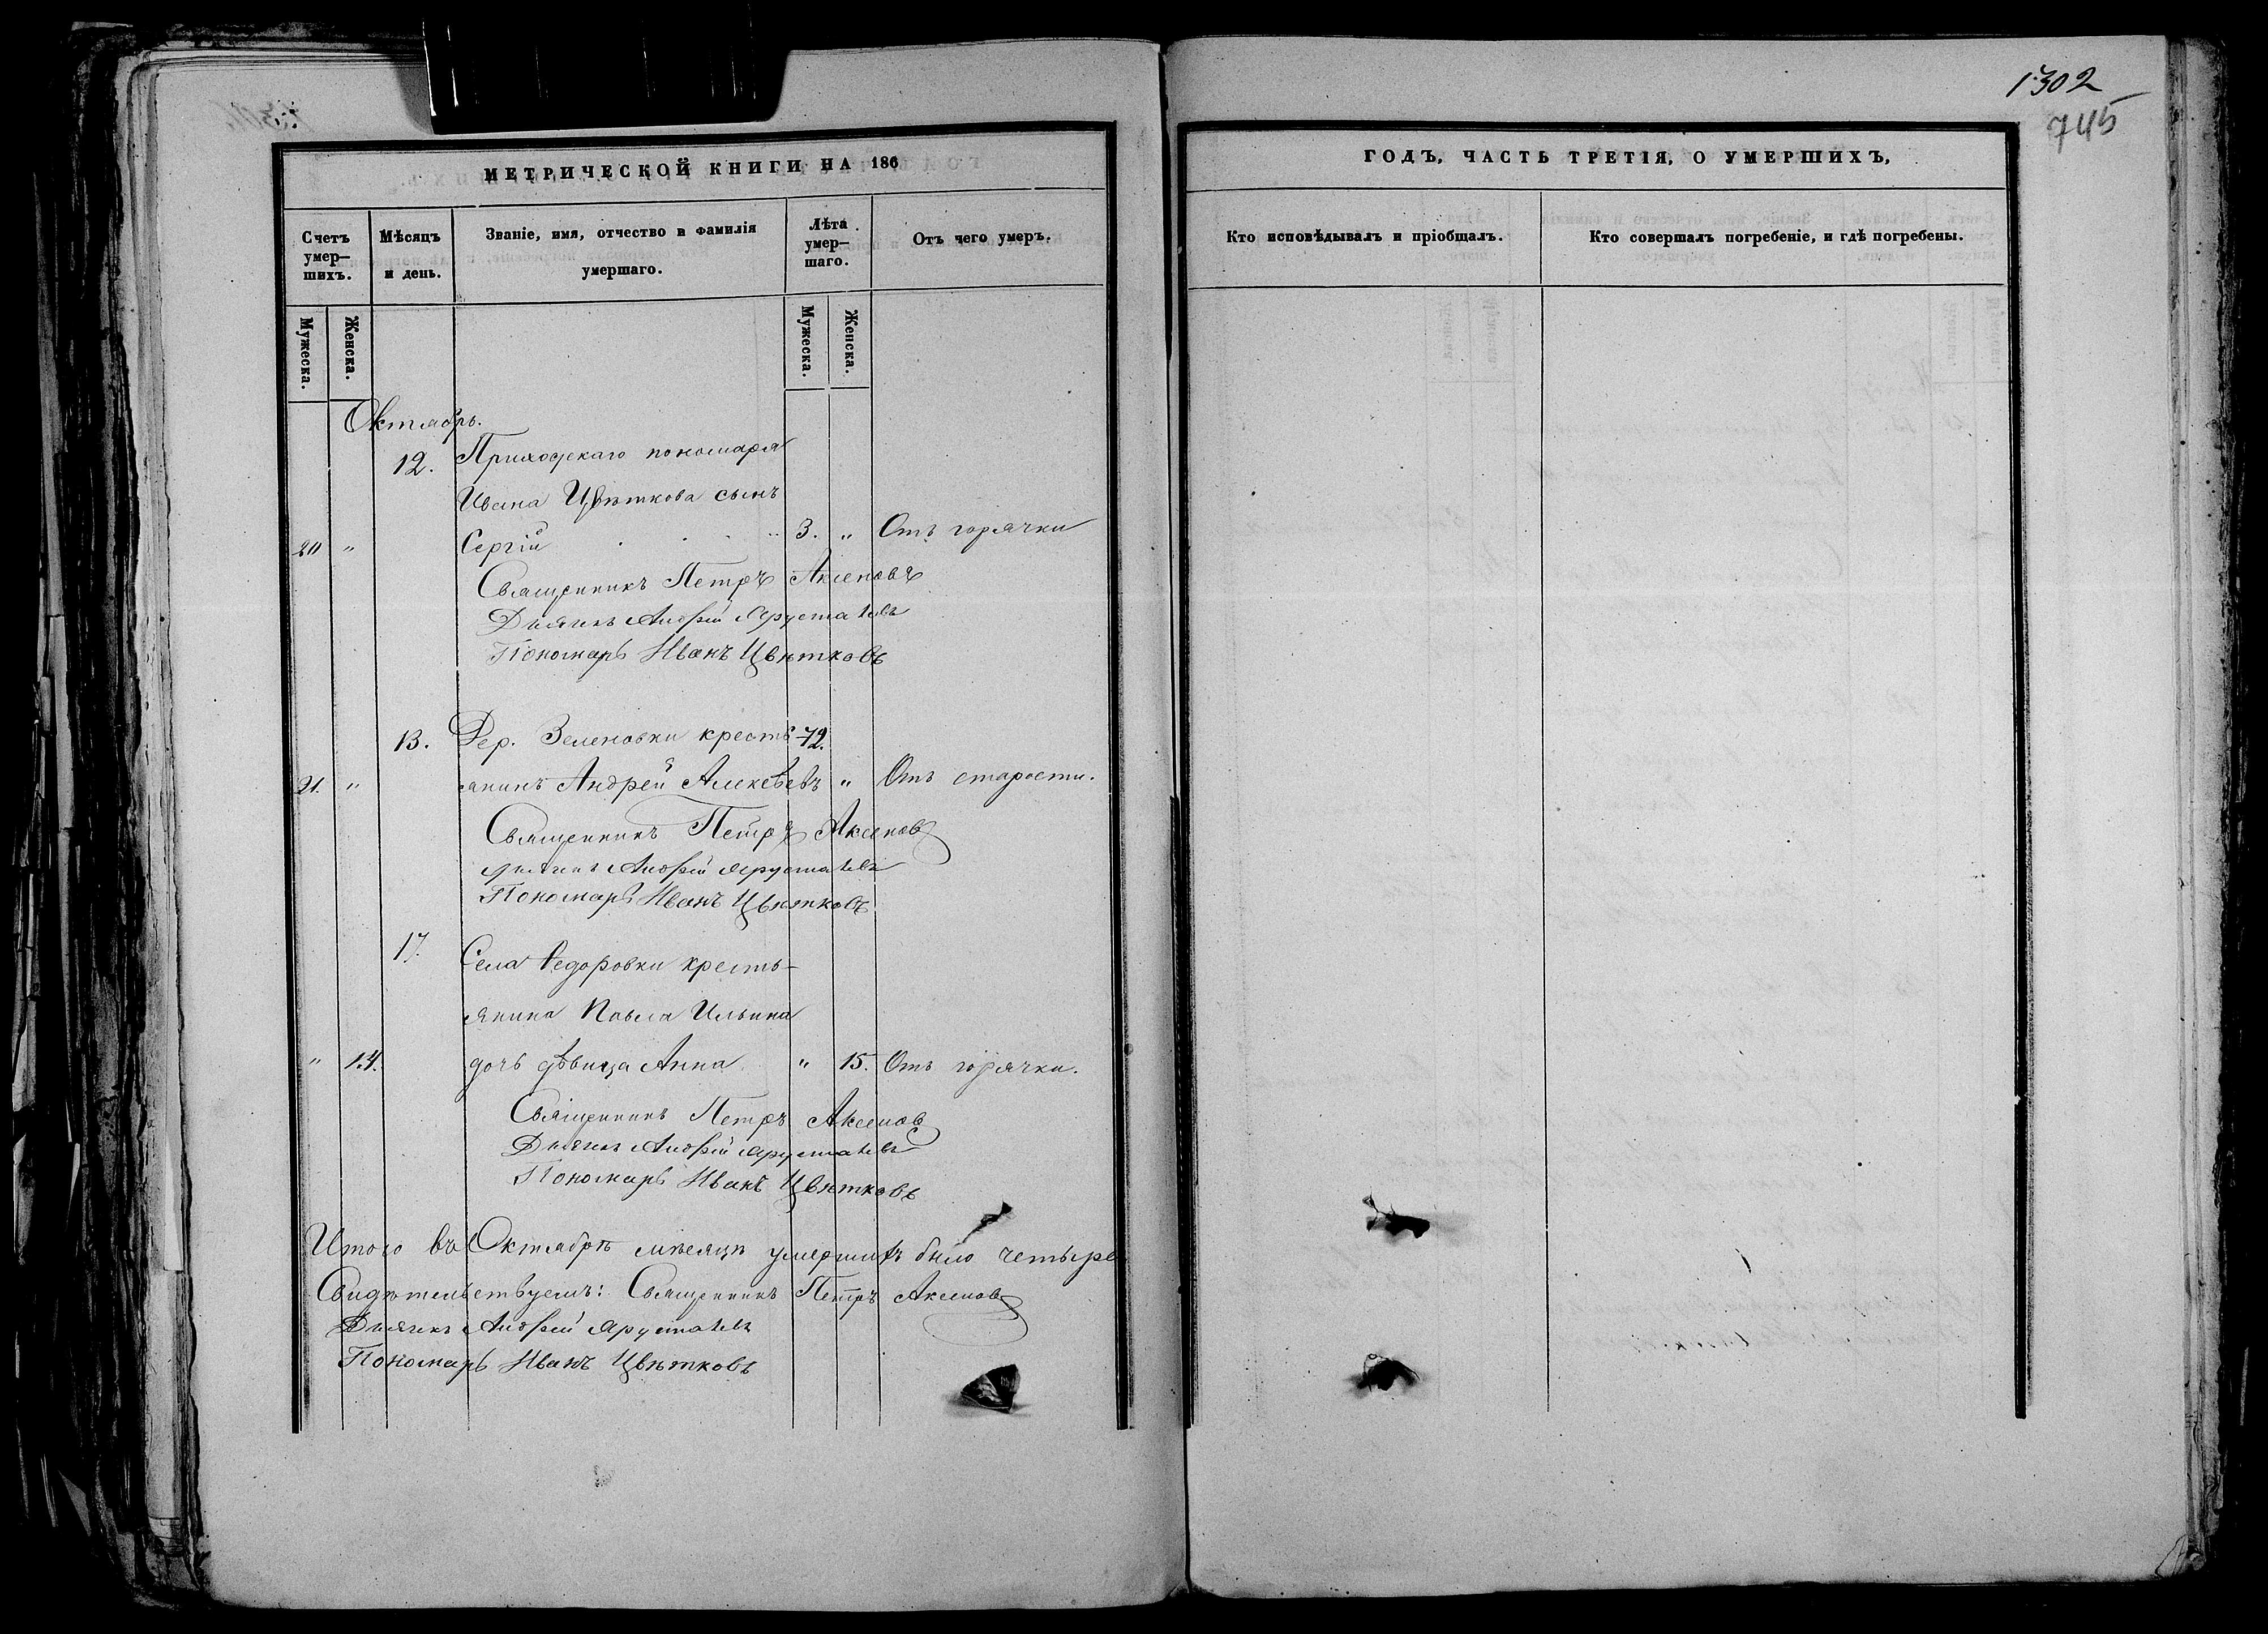 1302
745
МЕТРИЧЕСКОЙ КНИГИ НА 186
Счетъ умер— шихъ.
Мѣсяцъ и день.
Званіе, имя, отчество и фамилія умершаго.
Лѣта умер— шаго.
Отъ чего умеръ.
Мужеска.
Женска.
Мужеска.
Женска.
Октябрь.
12. Приходскаго пономаря
Ивана Цвѣткова сынъ
20 " Сергій 3. " Отъ горячки
Священникъ Петръ Аксеновъ
Дьячекъ Андрей
Пономарь Иванъ Цвѣтковъ
13. Дер. Зеленовки кресть- 72.
21. " янинъ Андрей Алексѣевъ " Отъ старости.
Священникъ Петръ Аксеновъ
Дьячекъ Андрей
Пономарь Иванъ Цвѣтковъ
17. Села Ѳедоровки кресть-
янина Павла Ильина
" 14. дочь дѣвица Анна " 15. Отъ горячки.
Священникъ Петръ Аксеновъ
Дьячекъ Андрей
Пономарь Иванъ Цвѣтковъ
Итого въ Октябрѣ мѣсяцѣ умершихъ было четыре
Свидѣтельствуемъ: Священникъ Петръ Аксеновъ
Дьячекъ Андрей
Пономарь Иванъ Цвѣтковъ
ГОДЪ, ЧАСТЬ ТРЕТІЯ, О УМЕРШИХЪ,
Кто исповѣдывалъ и пріобщалъ.
Кто совершалъ погребеніе, и гдѣ погребены.